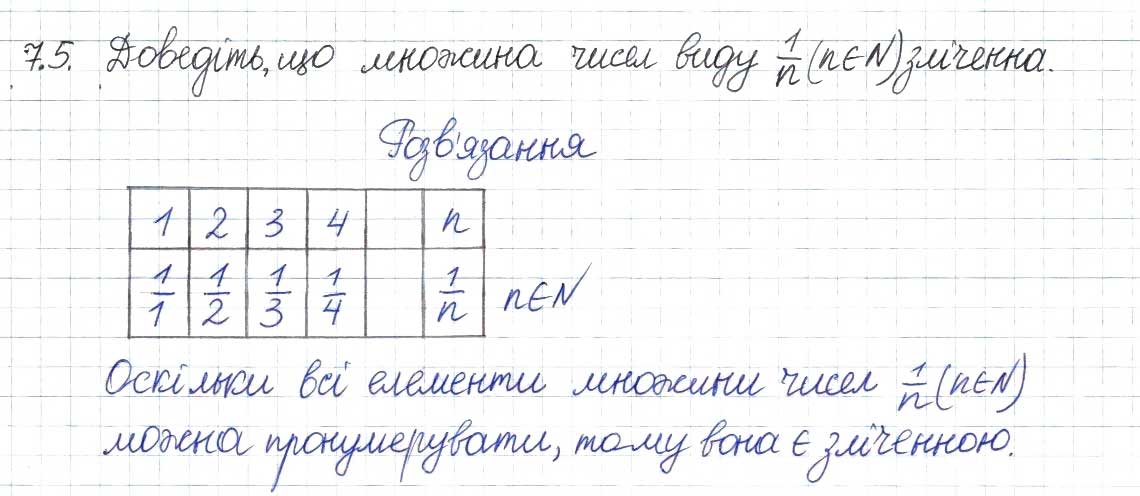 7.5. Доведіть, що множина чисел виду 1/n (n∈N) зліченна.
Розв'язання
1 2 3 4 n
1/1 1/2 1/3 1/4 1/n n∈N
Оскільки всі елементи множини чисел 1/n (n∈N)
можна пронумерувати, тому вона є зліченною.